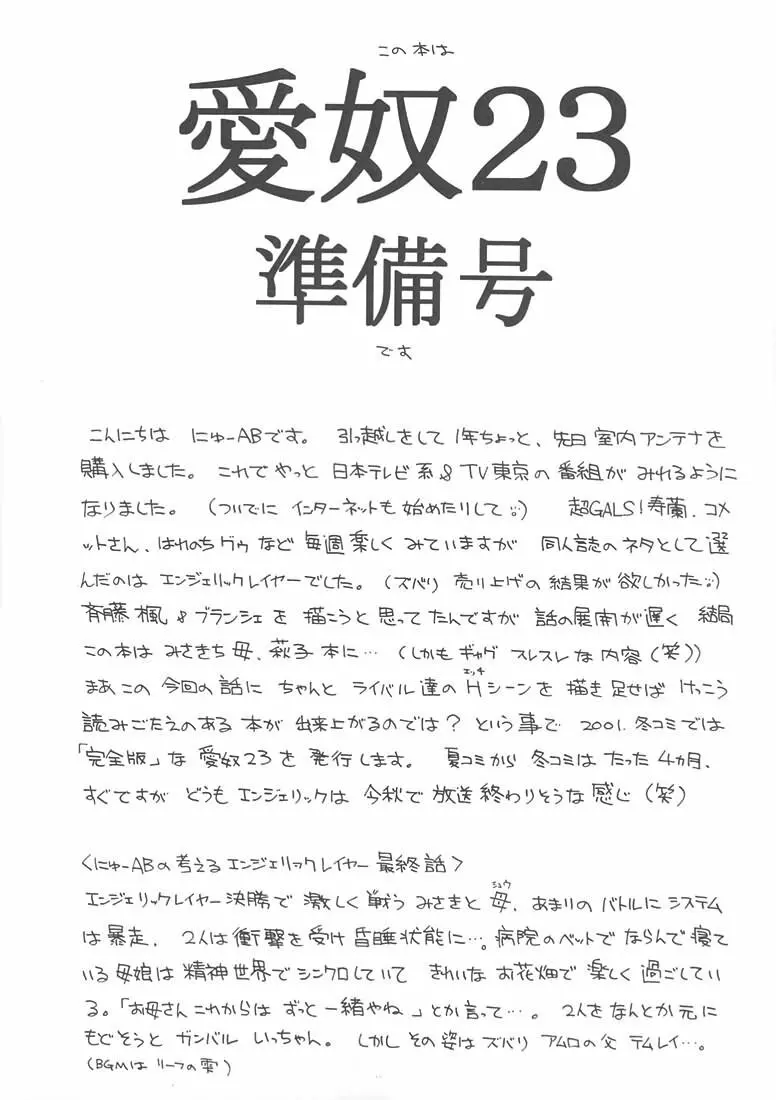 この本は
愛奴23
準備号
です
こんにちは にゅーABです。 引っ越しをして 1年ちょっと、先日 室内アンテナを
購入しました。 これでやっと 日本テレビ系&TV東京の番組が みれるように
なりました。 (ついでに インターネットも始めたりして) 超GALS!寿蘭、コメ
ットさん、はれのちグゥ など 毎週楽しく みていますが 同人誌のネタとして選
んだのは エンジェリックレイヤーでした。(ズバリ 売り上げの結果が欲しかった)
斉藤楓&ブランシェを 描こうと思ってたんですが 話の展開が遅く 結局
この本は みさきち母、萩子本に… (しかもギャグ スレスレな内容(笑))
まあこの 今回の話に ちゃんと ライバル達の Hエッチシーンを 描き足せば けっこう
読みごたえのある 本が 出来上がるのでは? という事で 2001.冬コミでは
「完全版」な 愛奴23を 発行します。 夏コミから 冬コミは たった 4ヵ月、
すぐですが どうも エンジェリックは 今秋で 放送終わりそうな 感じ(笑)
<にゅーABの考えるエンジェリックレイヤー最終話>
エンジェリックレイヤー決勝で 激しく戦う みさきと 母シュウ、あまりのバトルに システム
は暴走、 2人は衝撃を受け昏睡状態に…。病院のベットで ならんで寝て
いる母娘は 精神世界で シンクロしていて きれいな お花畑で 楽しく 過ごしてい
る。「お母さん これからは ずっと 一緒やね」とか言って…。 2人を なんとか元に
もどそうと ガンバル いっちゃん。 しかし その姿は ズバリ アムロの父 テムレイ…。
(BGMは リーフの雫)